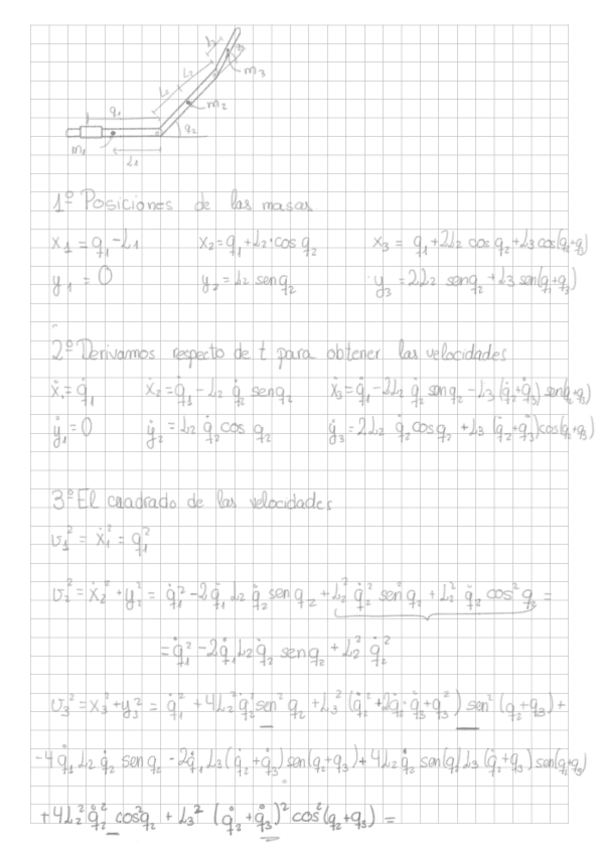 L3
q3
m3
L2
L2
m2
q1
q2
m1
L1
1º Posiciones de las masas
x1 = q1 - L1 x2 = q1 + L2·cos q2 x3 = q1 + 2L2 cos q2 + L3 cos(q2+q3)
y1 = 0 y2 = L2 sen q2 y3 = 2L2 sen q2 + L3 sen(q2+q3)
2º Derivamos respecto de t para obtener las velocidades
ẋ1 = q̇1 ẋ2 = q̇1 - L2 q̇2 sen q2 ẋ3 = q̇1 - 2L2 q̇2 sen q2 - L3 (q̇2+q̇3) sen(q2+q3)
ẏ1 = 0 ẏ2 = L2 q̇2 cos q2 ẏ3 = 2L2 q̇2 cos q2 + L3 (q̇2+q̇3) cos(q2+q3)
3º El cuadrado de las velocidades
v1² = ẋ1² = q̇1²
v2² = ẋ2² + ẏ2² = q̇1² - 2q̇1 L2 q̇2 sen q2 + L2² q̇2² sen² q2 + L2² q̇2² cos² q2 =
= q̇1² - 2q̇1 L2 q̇2 sen q2 + L2² q̇2²
v3² = ẋ3² + ẏ3² = q̇1² + 4L2² q̇2² sen² q2 + L3² (q̇2² + 2q̇2·q̇3 + q̇3²) sen² (q2+q3) +
-4 q̇1 L2 q̇2 sen q2 - 2q̇1 L3 (q̇2+q̇3) sen(q2+q3) + 4L2 q̇2 sen(q2) L3 (q̇2+q̇3) sen(q2+q3)
+4L2² q̇2² cos² q2 + L3² (q̇2+q̇3)² cos² (q2+q3) =